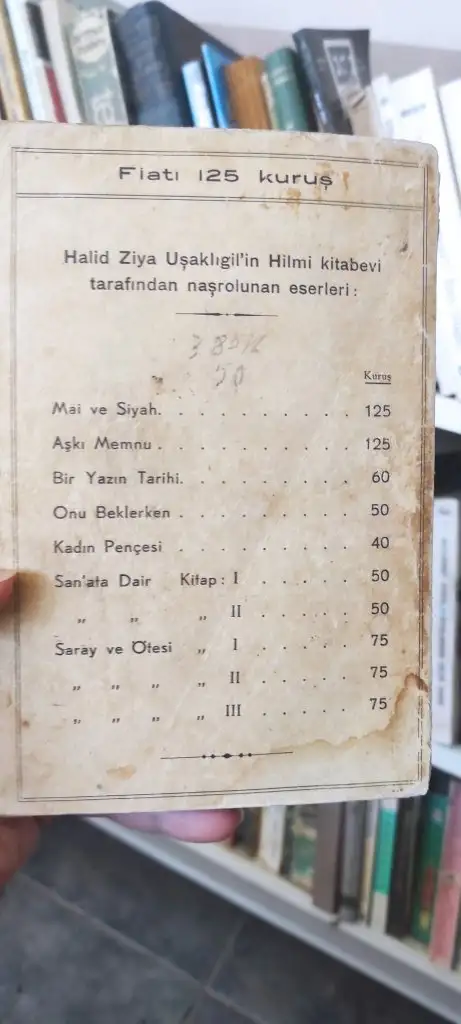 Fiatı 125 kuruş
Halid Ziya Uşaklıgil'in Hilmi kitabevi
tarafından naşrolunan eserleri :
Kuruş
Mai ve Siyah. . . . . . . . . . 125
Aşkı Memnu . . . . . . . . . . 125
Bir Yazın Tarihi. . . . . . . . . 60
Onu Beklerken . . . . . . . . . 50
Kadın Pençesi . . . . . . . . . 40
San'ata Dair Kitap : I . . . . . 50
„ „ „ II . . . . . 50
Saray ve Ötesi „ I . . . . . 75
„ „ „ „ II . . . . . 75
„ „ „ „ III . . . . . 75